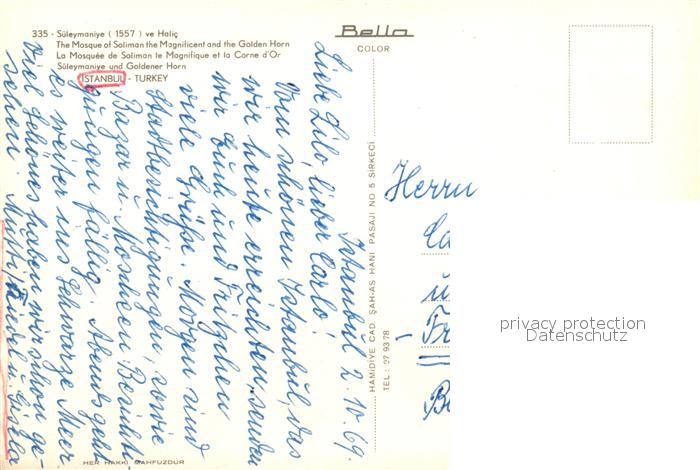 335 - Süleymaniye ( 1557 ) ve Haliç
The Mosque of Soliman the Magnificent and the Golden Horn
La Mosquée de Soliman le Magnifique et la Corne d'Or
Süleymaniye und Goldener Horn
ISTANBUL - TURKEY
Bella
COLOR
Istanbul 2.10.69.
Liebe Lilo, lieber Carlo!
Vom schönen Istanbul, das
wir heute erreichten, senden
wir Euch und Fritzchen
viele Grüße. Morgen sind
Stadtbesichtigungen, sowie
Bazar u. Moscheen Besichti-
gungen fällig. Abends geht
es weiter ins Schwarze Meer.
Viel Schönes haben wir schon ge-
sehen.
HAMİDİYE CAD. ŞAH-AS HANI PASAJI NO 5 SİRKECİ
TEL.: 27 93 78
HER HAKKI MAHFUZDUR
Herrn
Ca
u
Fr
B
privacy protection
Datenschutz